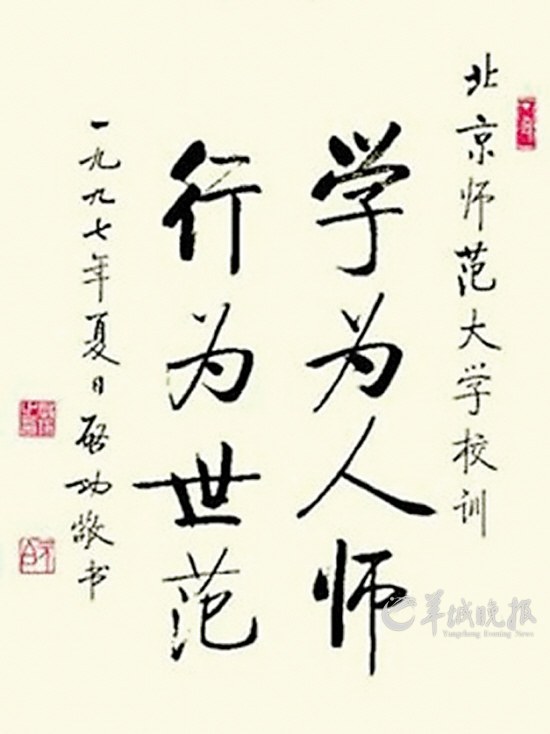 北京师范大学校训
学为人师
行为世范
一九九七年夏日启功敬书
羊城晚报
Yangcheng Evening News